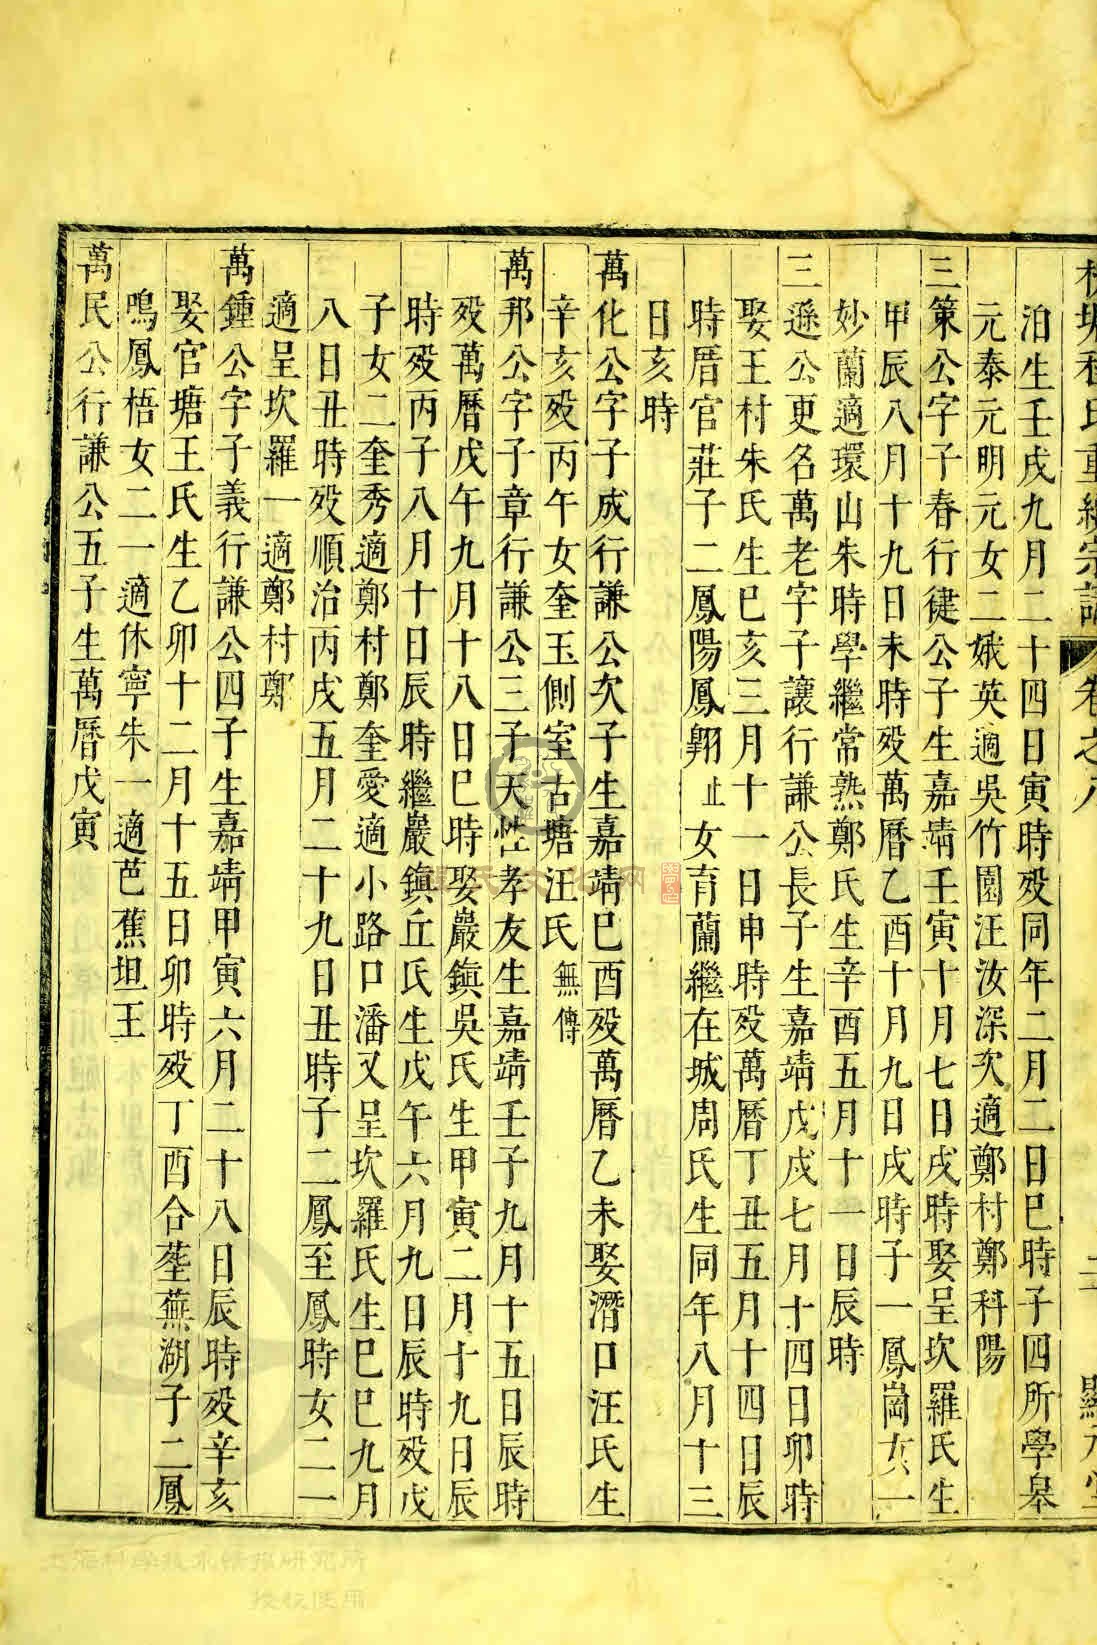 泊生壬戌九月二十四日寅時歿同年二月二日巳時子四所學皋
元泰元明元女二娥英適吳竹園汪汝深次適鄭村鄭科陽
三策公字子春行徤公子生嘉靖壬寅十月七日戌時娶呈坎羅氏生
甲辰八月十九日未時歿萬曆乙酉十月九日戌時子一鳳崗女一
妙蘭適環山朱時學繼常熟鄭氏生辛酉五月十一日辰時
三遜公更名萬老字子讓行謙公長子生嘉靖戊戌七月十四日卯時
娶王村朱氏生巳亥三月十一日申時歿萬曆丁丑五月十四日辰
時厝官莊子二鳳陽鳳翺止女育蘭繼在城周氏生同年八月十三
日亥時
萬化公字子成行謙公次子生嘉靖巳酉歿萬曆乙未娶潛口汪氏生
辛亥歿丙午女奎玉側室古塘汪氏無傳
萬邦公字子章行謙公三子天性孝友生嘉靖壬子九月十五日辰時
歿萬曆戊午九月十八日巳時娶巖鎮吳氏生甲寅二月十九日辰
時歿丙子八月十日辰時繼巖鎮丘氏生戊午六月九日辰時歿戊
子女二奎秀適鄭村鄭奎愛適小路口潘又呈坎羅氏生巳巳九月
八日丑時歿順治丙戌五月二十九日丑時子二鳳至鳳時女二一
適呈坎羅一適鄭村鄭
萬鍾公字子義行謙公四子生嘉靖甲寅六月二十八日辰時歿辛亥
娶官塘王氏生乙卯十二月十五日卯時歿丁酉合塟蕪湖子二鳳
鳴鳳梧女二一適休寧朱一適芭蕉坦王
萬民公行謙公五子生萬曆戊寅